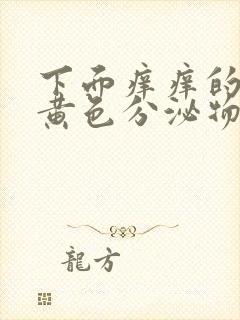 下面痒痒的
黄色分泌物
龍方